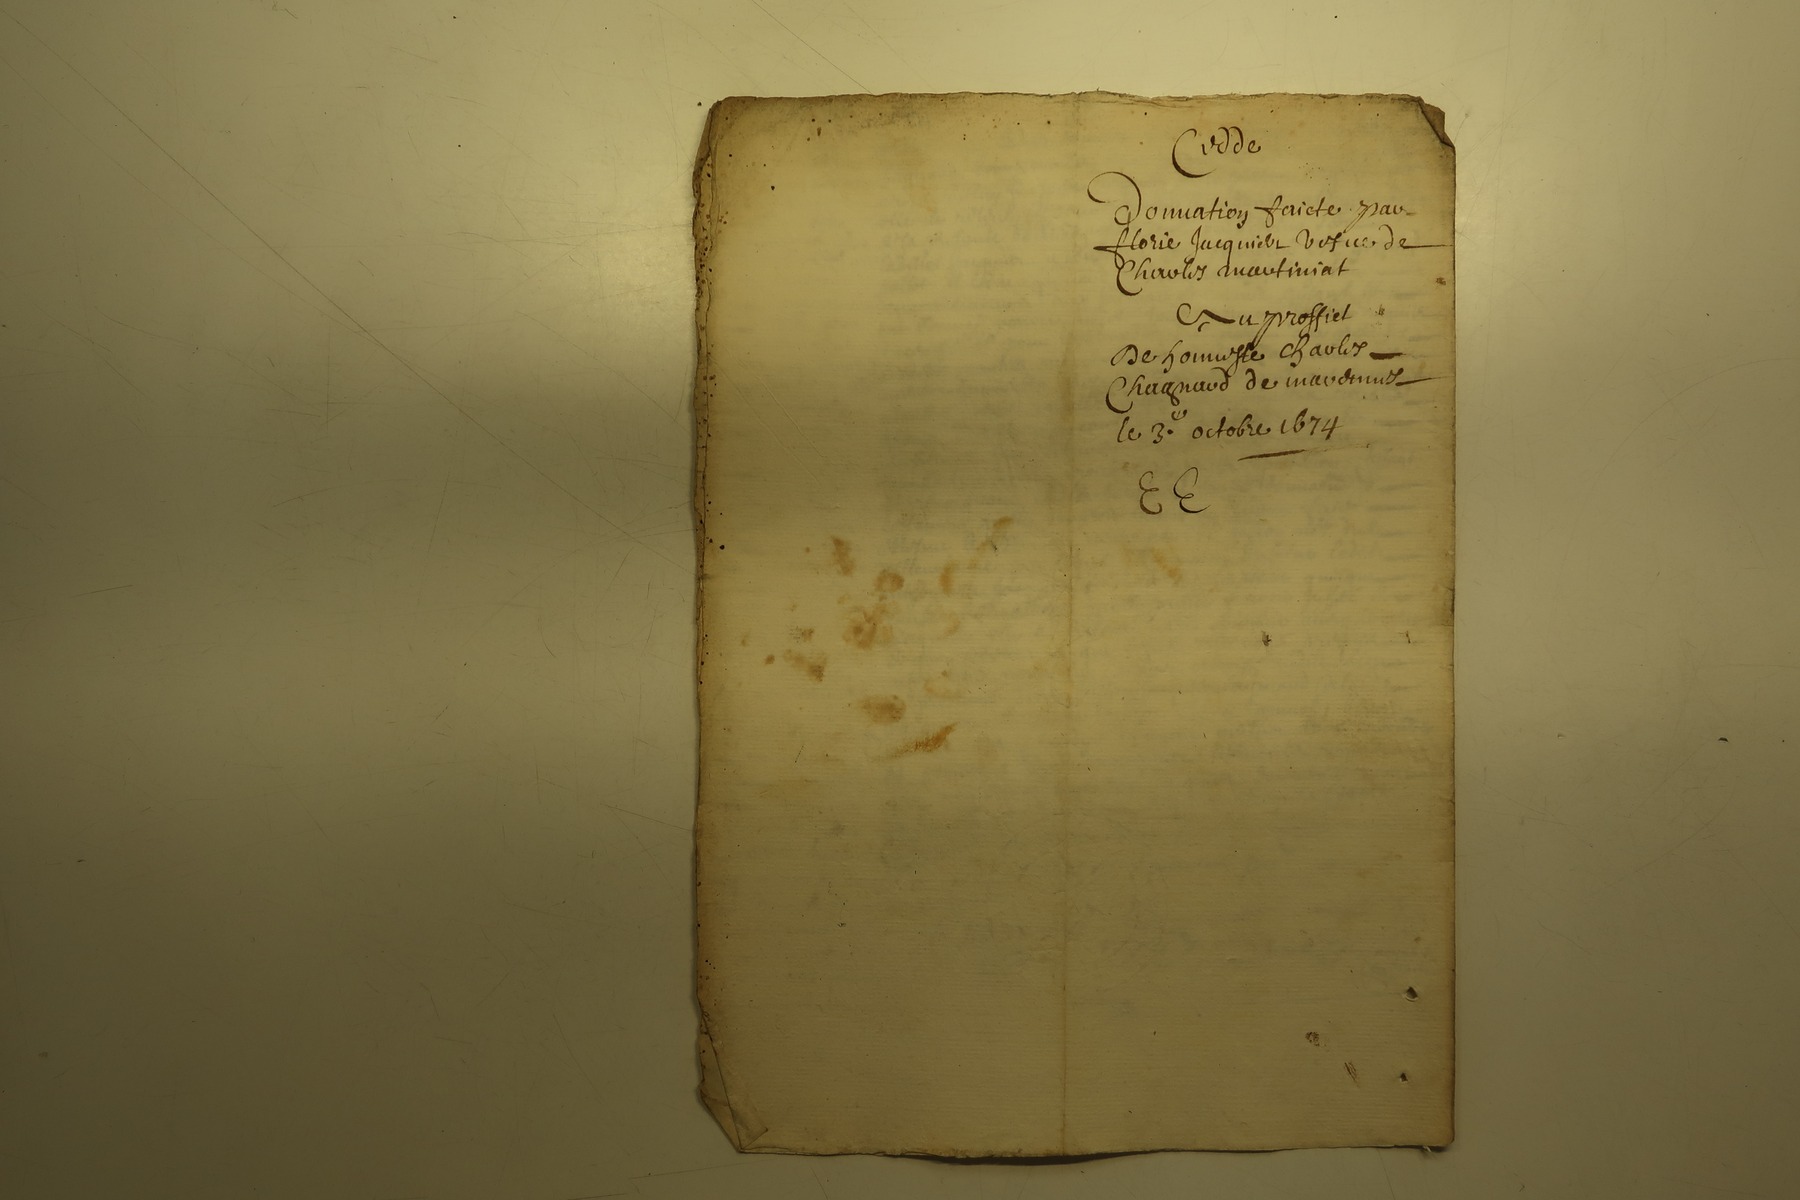 Cedde
Donnation faicte par
florie Jacquier vefue de
Charles martiniat
Au proffict
De honneste Charles
Chagnard de
le 3.e octobre 1674
E E